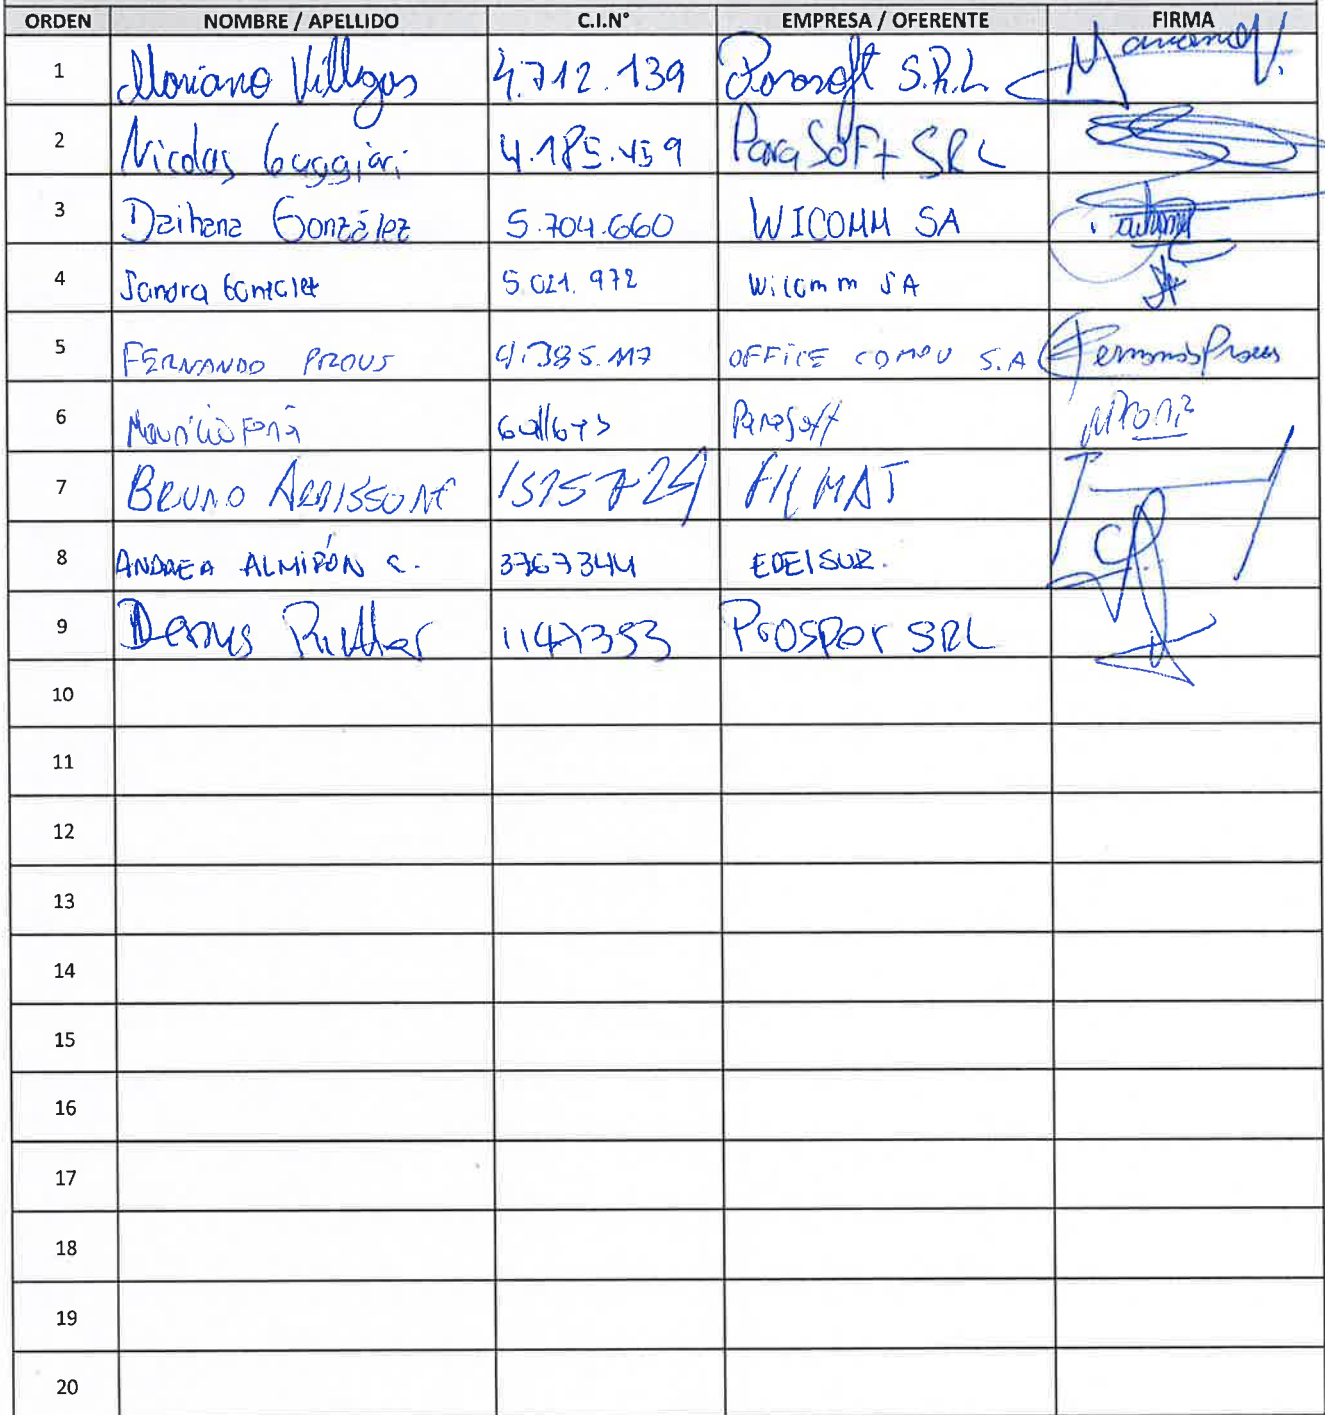 ORDEN NOMBRE / APELLIDO C.I.N° EMPRESA / OFERENTE FIRMA
1 Mariano Villegas 4.712.139 Parasoft S.R.L Mariano V.
2 Nicolas Guggiari 4.185.459 ParaSoft SRL
3 Daihana González 5.704.660 WICOMM SA
4 Sandra Gonzalez 5.021.972 Wicomm SA
5 FERNANDO PROUS 4.385.117 OFFICE COMPU S.A Fernando Prous
6 Mauricio Parasoft
7 BRUNO 1515724 FILMAT
8 ANDREA ALMIRÓN C. 3767344 EDELSUR.
9 Denus 1147353 Prosper SRL
10
11
12
13
14
15
16
17
18
19
20